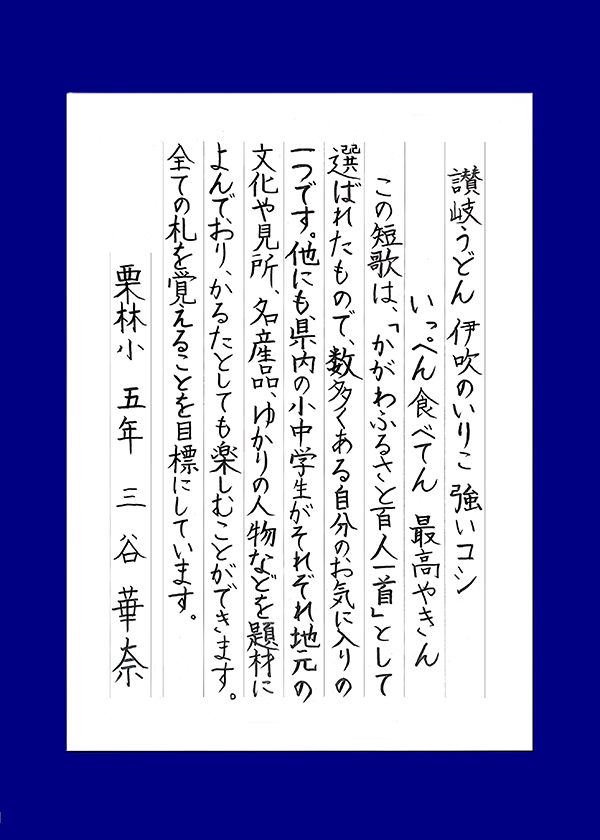 讃岐うどん 伊吹のいりこ 強いコシ
いっぺん食べてん 最高やきん
この短歌は、「かがわふるさと百人一首」として
選ばれたもので、数多くある自分のお気に入りの
一つです。他にも、県内の小中学生がそれぞれ地元の
文化や見所、名産品、ゆかりの人物などを題材に
よんでおり、かるたとしても楽しむことができます。
全ての札を覚えることを目標にしています。
栗林小 五年 三谷華奈